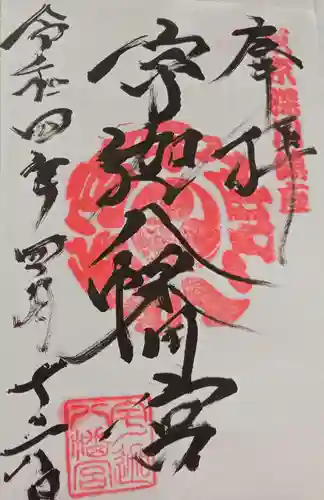 奉拝
宇迦八幡宮
令和四年四月十二日
宇迦
八幡宮